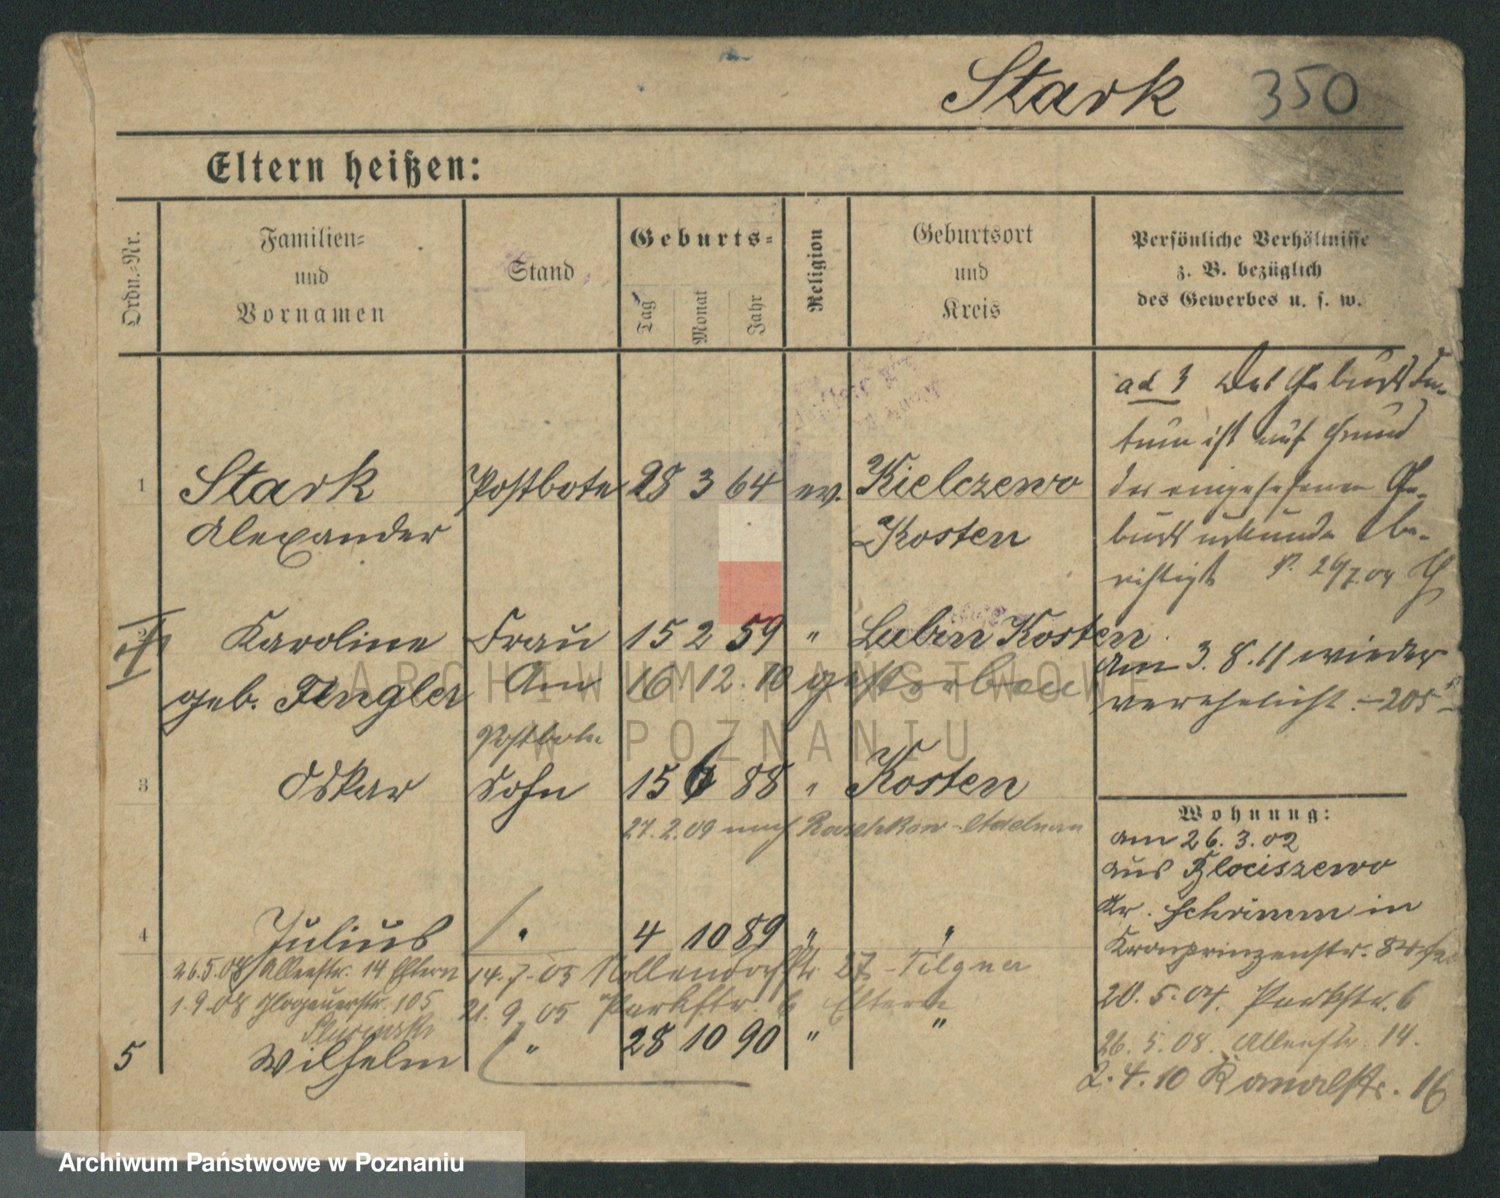 Stark 350
Eltern heißen:
Ordn.-Nr.
Familien-
und
Vornamen
Stand
Geburts-
Tag
Monat
Jahr
Religion
Geburtsort
und
Kreis
Persönliche Verhältnisse
z. B. bezüglich
des Gewerbes u. s. w.
1 Stark Postbote 28 3 64 ev. Kielczewo
Alexander Kosten
Karoline Frau 15 2 59 " Lubin Kosten
geb. Fengler Am 16 12. 10 gestorben
Postbote
3 Oskar Sohn 15 6 88 " Kosten
27. 2. 09 nach Raschkow-Adelnau
4 Julius " 4 10 89 " "
26.5.08 Allenstr. 14 Eltern 14.7.05 Nollendorfstr 27 - Tilgner
1.9.08 Glogauerstr. 105 21. 9. 05 Parkstr. 6 Eltern
5 Wilhelm " 28 10 90 " "
ad 3 Das Geburtsda-
tum ist auf Grund
der eingesehenen Ge-
burtsurkunde be-
richtigt
Am 3. 8. 11 wieder
verehelicht.
Wohnung:
am 26. 3. 02
aus
Kr. Schrimm in
Kronprinzenstr.
20. 5. 04. Parkstr. 6
26. 5. 08. Allenstr. 14.
2. 4. 10 Kanalstr. 16
ARCHIWUM PAŃSTWOWE
W POZNANIU
Archiwum Państwowe w Poznaniu